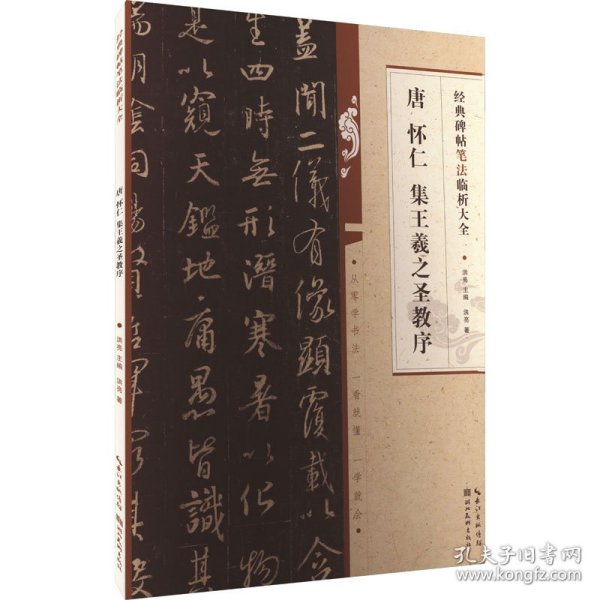 经典碑帖笔法临析大全
唐 怀仁 集王羲之圣教序
洪亮 主编 洪亮 著
从零学书法 一看就懂 一学就会
盖闻二仪有像显覆载以含
生四时无形潜寒暑以化物
是以窥天鉴地庸愚皆识其
经典碑帖笔法临析大全
唐 怀仁 集王羲之圣教序
洪亮 主编 洪亮 著
长江出版传媒
湖北美术出版社
孔夫子旧书网
www.kongfz.com